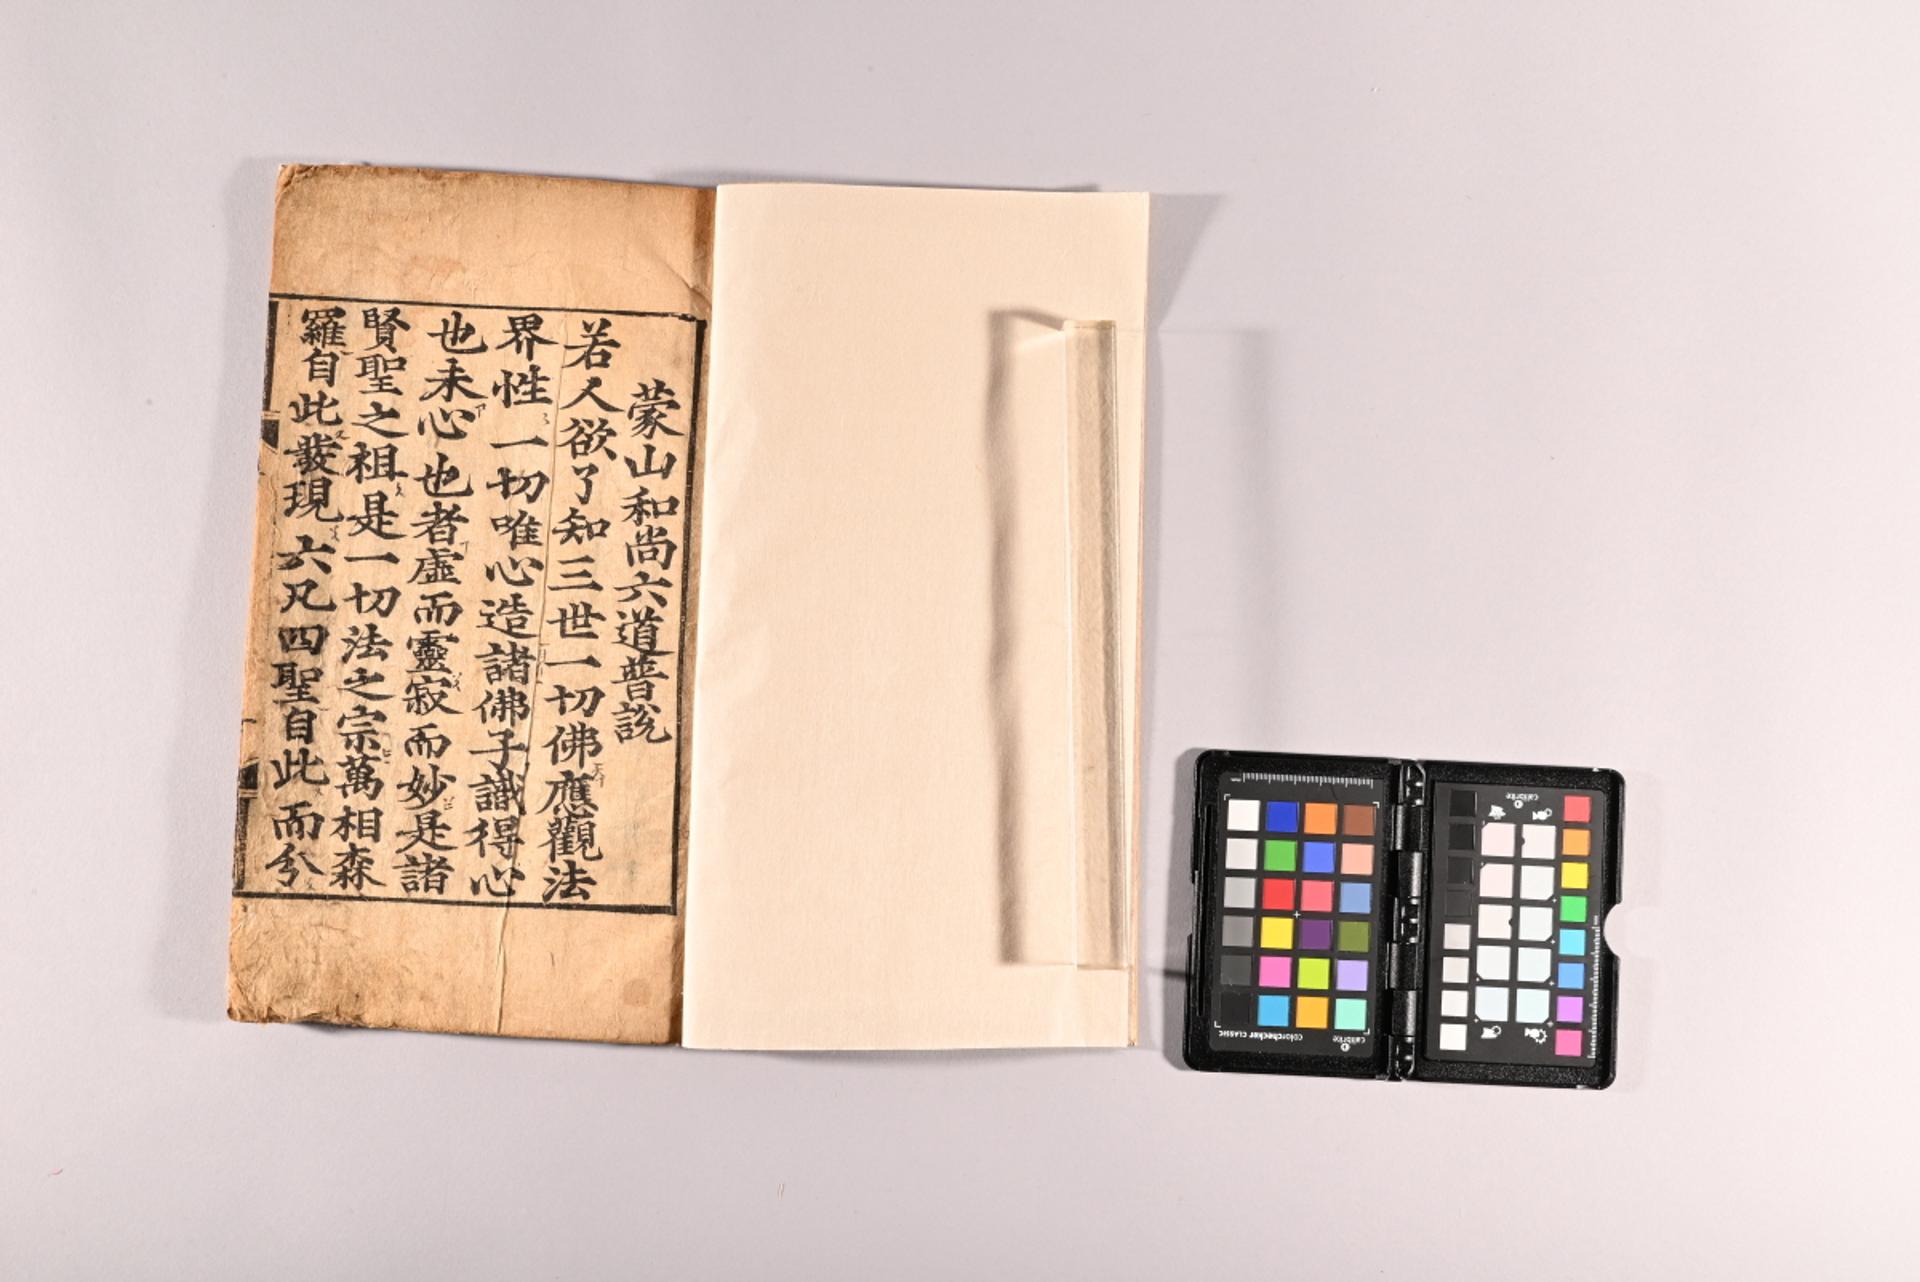 蒙山和尚六道普說
若人欲了知三世一切佛應觀法
界性一切唯心造諸佛子識得心
也未心也者虛而靈寂而妙是諸
賢聖之祖是一切法之宗萬相森
羅自此發現六凡四聖自此而兮
calibrite
colorchecker CLASSIC
calibrite